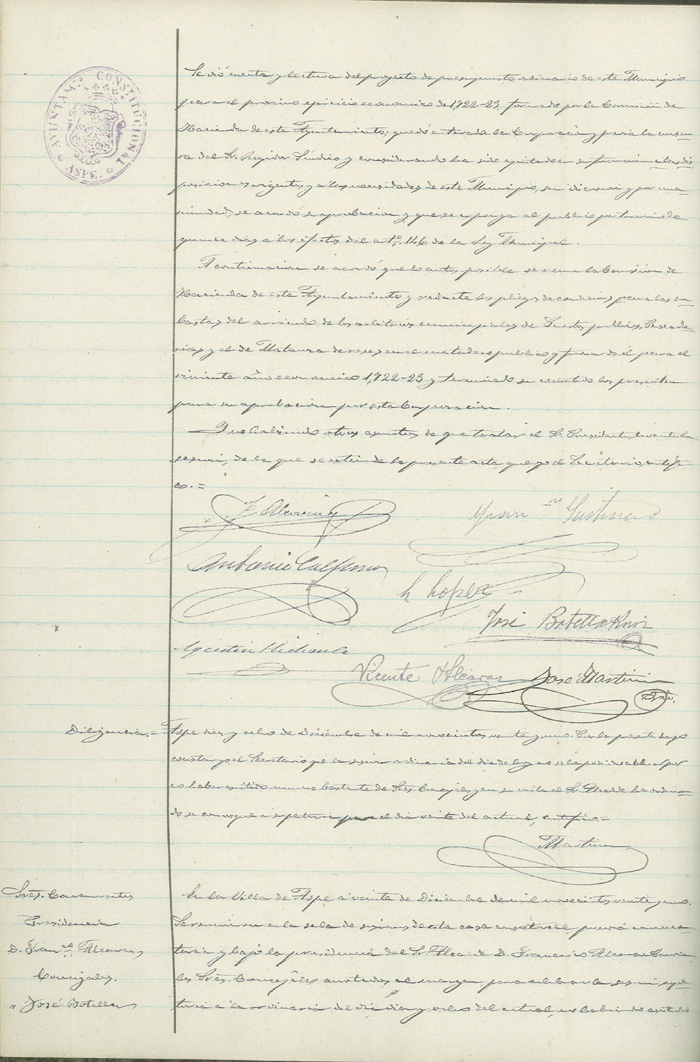 AYUNTAM. CONSTITUCIONAL
ASPE.
Se dió cuenta y lectura del proyecto de presupuesto ordinario de este Municipio
para el proximo ejercicio economico de 1,922-23 formado por la Comision de
Hacienda de este Ayuntamiento; quedó enterada la Corporación y previa la censu-
ra del Sr. Regidor Sindico y considerando ha sido ajustado en su formacion a las dis-
posiciones vigentes y a las necesidades de este Municipio, sin discusion y por una-
nimidad, se acordó su aprobacion y que se esponga al publico por termino de
quince dias a los efectos del artº. 146 de la Ley Municipal.
A continuacion se acordó que lo antes posible se reuna la Comision de
Hacienda de este Ayuntamiento y redacte los pliegos de condiciones para las su-
bastas del arriendo de los arbitrios municipales de Puestos publicos,
y el de Matanza de reses en el matadero publico y fuera de él para el
año economico 1,922-23 y terminado su cometido los presenten
para su aprobacion por esta Corporacion.
Y no habiendo otros asuntos de que tratar el Sr. Presidente, levantó la
sesion, de la que se estiende la presente acta que yo el Secretario, certifi-
co. =
F. Alcaraz
Antonio Calpena
h Lopez
José Botella
Vicente Alcaraz
José Martinez
Srio.
Diligencia. =
Aspe diez y ocho de Diciembre de mil novecientos veinte y uno. Con la presente hago
constar yo el Secretario que la sesion ordinaria del dia de hoy no se ha podido celebrar por
no haber asistido numero bastante de Sres. Concejales, y en su vista el Sr. Alcalde ha ordena-
do se convoque a supletoria para el dia veinte del actual, certifico. =
Martinez
Sres. Concurrentes
Presidencia
D. Franco. Alcaraz
Concejales.
" José Botella
En la Villa de Aspe a veinte de Diciembre de mil novecientos veinte y uno.
Se reunieron en la sala de sesiones de esta casa consistorial previa convoca-
toria y bajo la presidencia del Sr. Alcalde D. Francisco Alcaraz
los Sres. Concejales anotados al margen para celebrar la sesion suple-
toria a la ordinaria del dia diez y ocho del actual, no habiendo asistido